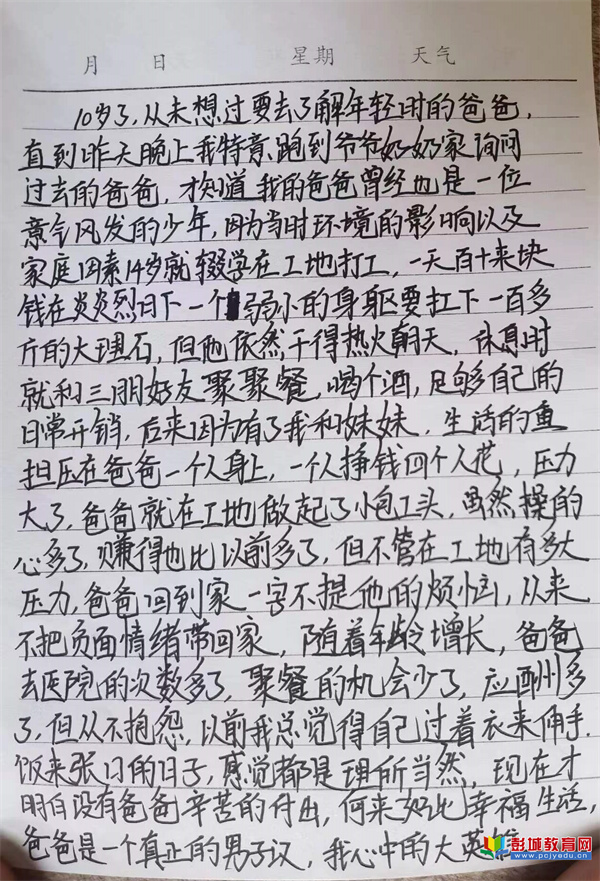 月 日 星期 天气
10岁了,从未想过要去了解年轻时的爸爸,
直到昨天晚上我特意跑到爷爷奶奶家询问
过去的爸爸,才知道我的爸爸曾经也是一位
意气风发的少年,因为当时环境的影响以及
家庭因素14岁就辍学在工地打工,一天百十来块
钱在炎炎烈日下一个弱小的身躯要扛下一百多
斤的大理石,但他依然干得热火朝天,休息时
就和三朋好友聚聚餐,喝个酒,足够自己的
日常开销,后来因为有了我和妹妹,生活的重
担压在爸爸一个人身上,一个人挣钱四个人花,压力
大了,爸爸就在工地做起了小包工头,虽然操的
心多了,赚得也比以前多了,但不管在工地有多大
压力,爸爸回到家一字不提他的烦恼,从来
不把负面情绪带回家,随着年龄增长,爸爸
去医院的次数多了,聚餐的机会少了,应酬多
了,但从不抱怨,以前我总觉得自己过着衣来伸手,
饭来张口的日子,感觉都是理所当然,现在才
明白没有爸爸辛苦的付出,何来如此幸福生活,
爸爸是一个真正的男子汉,我心中的大英雄
彭城教育网
www.pcjyedu.cn